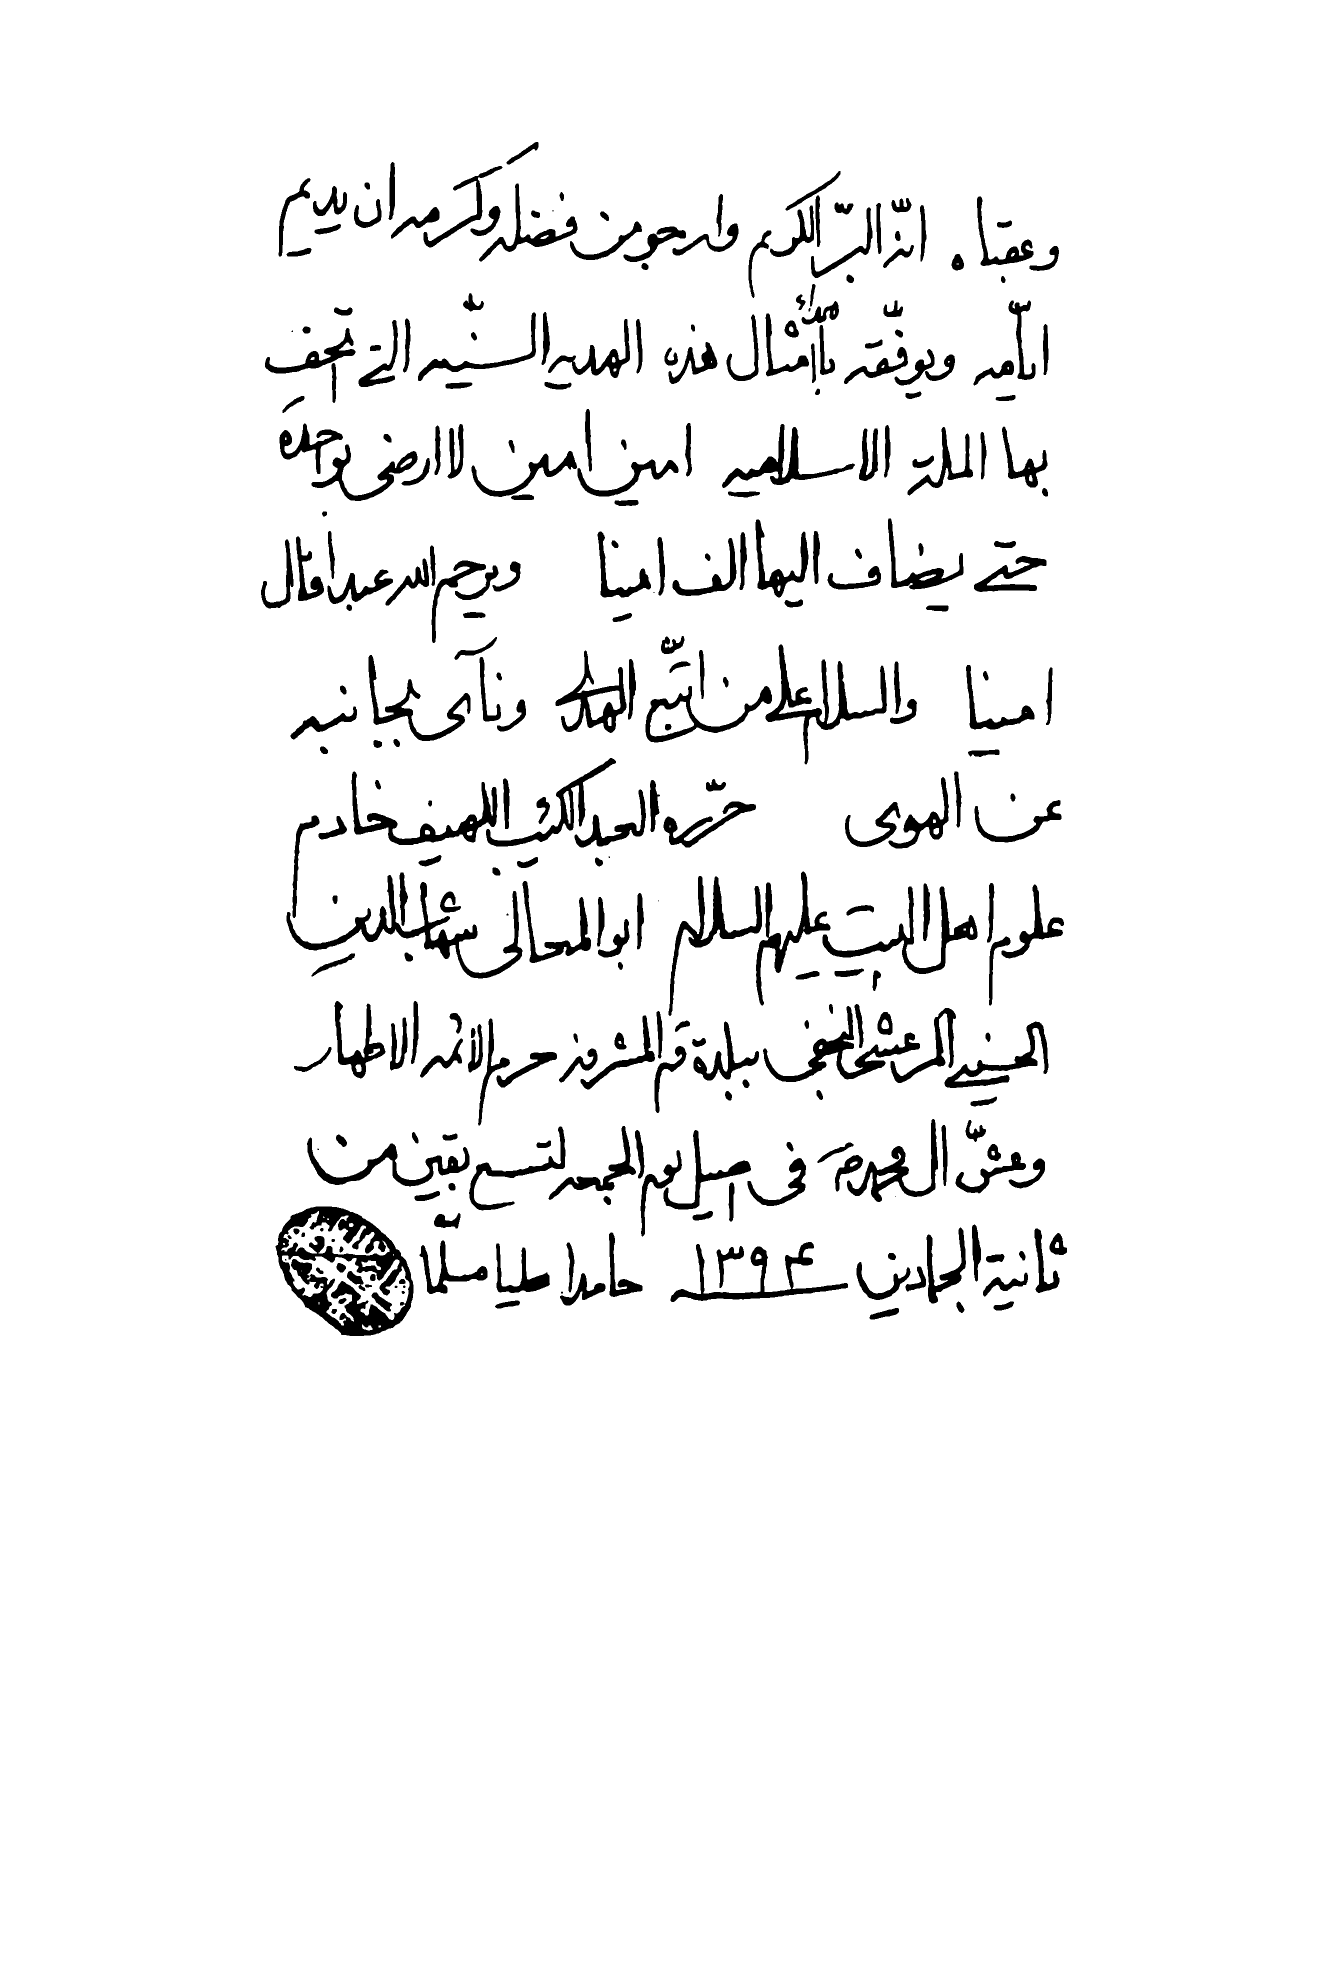 وعقباه انّه البرّ الكريم وارجو من فضله وكرمه ان يديم
ايّامه ويوفّقه بأمثال هذه الهديه السنّيه التي تحف
بها الملة الاسلاميه امين امين لا ارضى بواحدة
حتى يضاف اليها الف امينا ويرحم الله عبدا قال
امينا والسلام على من اتّبع الهدى ونآى بجانبه
عن الهوى حرّره العبد الكئيب اللهيف خادم
علوم اهل البيت عليهم السلام ابو المعالى شهاب الدين
الحسيني المرعشي النجفي ببلدة قم المشرفه حرم الائمه الاطهار
وعشّ ال محمد ص في اصيل يوم الجمعه لتسع بقين من
ثانية الجمادين ۱۳۹۴ حامدا مصليا مسلّما